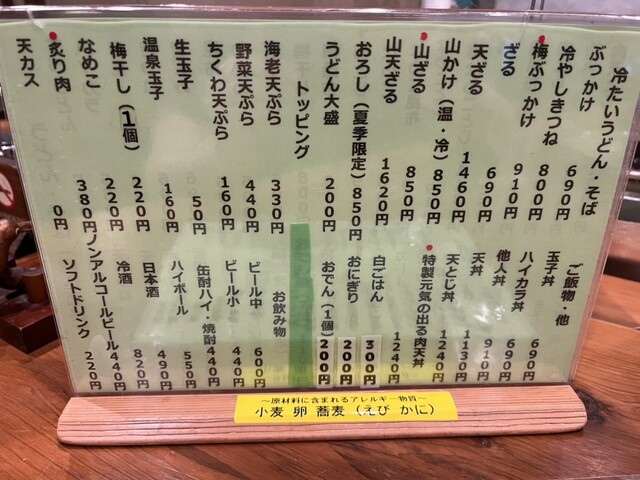 冷たいうどん・そば
ぶっかけ 690円
冷やしきつね 800円
梅ぶっかけ 910円
ざる 690円
天ざる 1460円
山かけ（温・冷） 850円
山ざる 850円
山天ざる 1620円
おろし（夏季限定） 850円
うどん大盛 200円
トッピング
海老天ぷら 330円
野菜天ぷら 440円
ちくわ天ぷら 160円
生玉子 50円
温泉玉子 160円
梅干し（1個） 220円
なめこ 220円
炙り肉 380円
天カス 0円
ご飯物・他
玉子丼 690円
ハイカラ丼 690円
他人丼 910円
天丼 1130円
天とじ丼 1240円
特製元気の出る肉天丼 1240円
白ごはん 300円
おにぎり 200円
おでん（1個） 200円
お飲み物
ビール中 600円
ビール小 440円
缶酎ハイ・焼酎 440円
ハイボール 550円
日本酒 490円
冷酒 820円
ノンアルコールビール 440円
ソフトドリンク 220円
～原材料に含まれるアレルギー物質～
小麦 卵 蕎麦（えび かに）